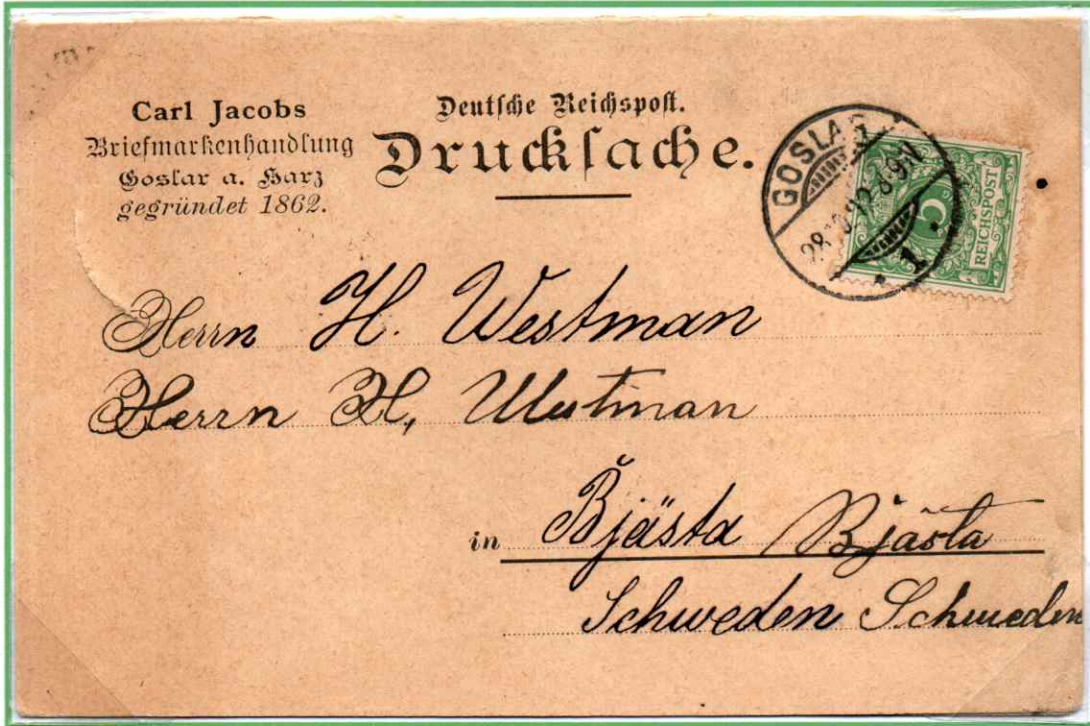 Carl Jacobs
Briefmarkenhandlung
Goslar a. Harz
gegründet 1862.
Deutsche Reichspost.
Drucksache.
GOSLAR
1.
5
REICHSPOST
Herrn H. Westman
Herrn H, Westman
in Bjästa Bjästa
Schweden Schweden